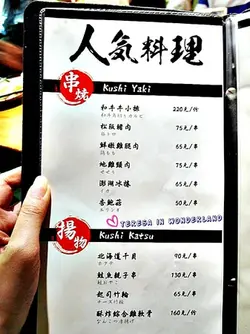 人気料理
串燒 Kushi Yaki
和牛牛小排 220元/份
松阪豬肉 75元/串
鮮嫩雞腿肉 65元/串
地雞雞肉 75元/串
澎湖冰捲 65元/串
杏鮑菇 50元/串
TERESA IN WONDERLAND
揚物 Kushi Katsu
北海道干貝 90元/串
ホタテ
鮭魚親子串 130元/串
起司竹輪 65元/串
チーズ竹輪
酥炸綜合雞軟骨 160元/份